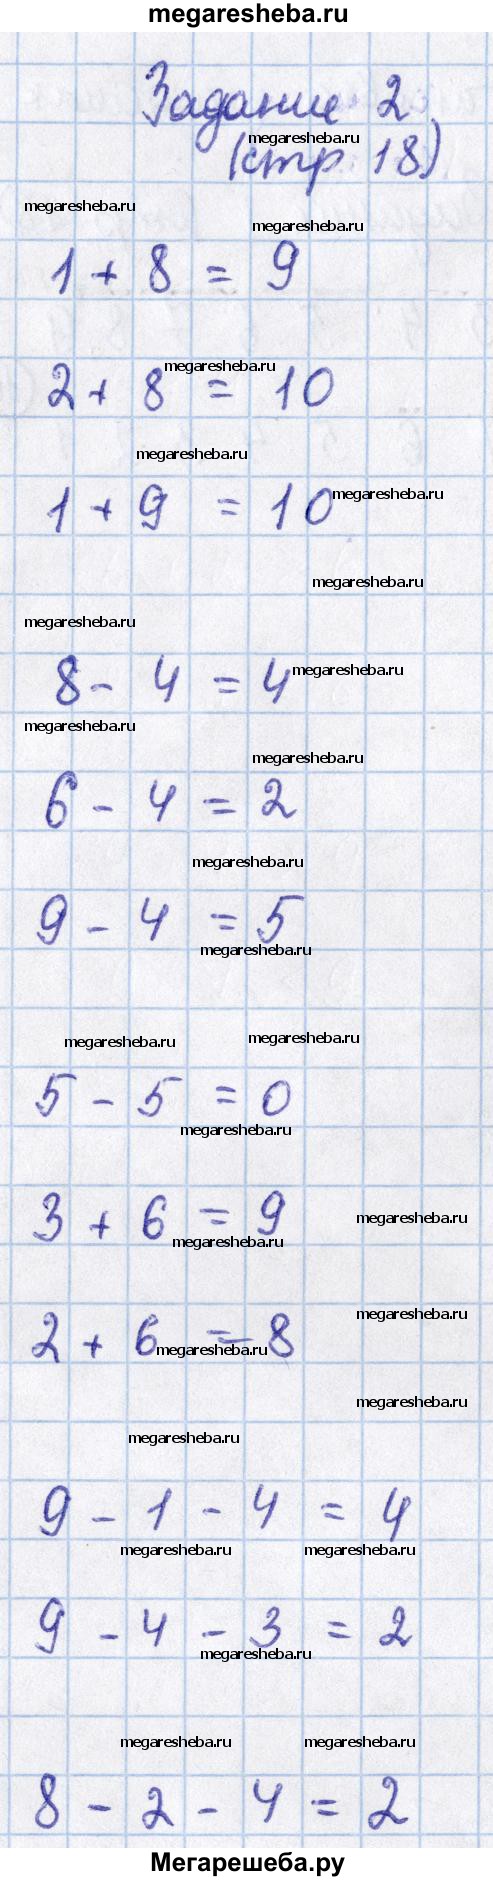 megaresheba.ru
Задание 2
megaresheba.ru
(стр 18)
megaresheba.ru
megaresheba.ru
1 + 8 = 9
megaresheba.ru
2 + 8 = 10
megaresheba.ru
1 + 9 = 10
megaresheba.ru
megaresheba.ru
megaresheba.ru
8 - 4 = 4
megaresheba.ru
megaresheba.ru
megaresheba.ru
6 - 4 = 2
megaresheba.ru
9 - 4 = 5
megaresheba.ru
megaresheba.ru
megaresheba.ru
5 - 5 = 0
megaresheba.ru
3 + 6 = 9
megaresheba.ru
megaresheba.ru
megaresheba.ru
2 + 6 = 8
megaresheba.ru
megaresheba.ru
megaresheba.ru
9 - 1 - 4 = 4
megaresheba.ru
megaresheba.ru
9 - 4 - 3 = 2
megaresheba.ru
megaresheba.ru
megaresheba.ru
8 - 2 - 4 = 2
Мегарешеба.ру